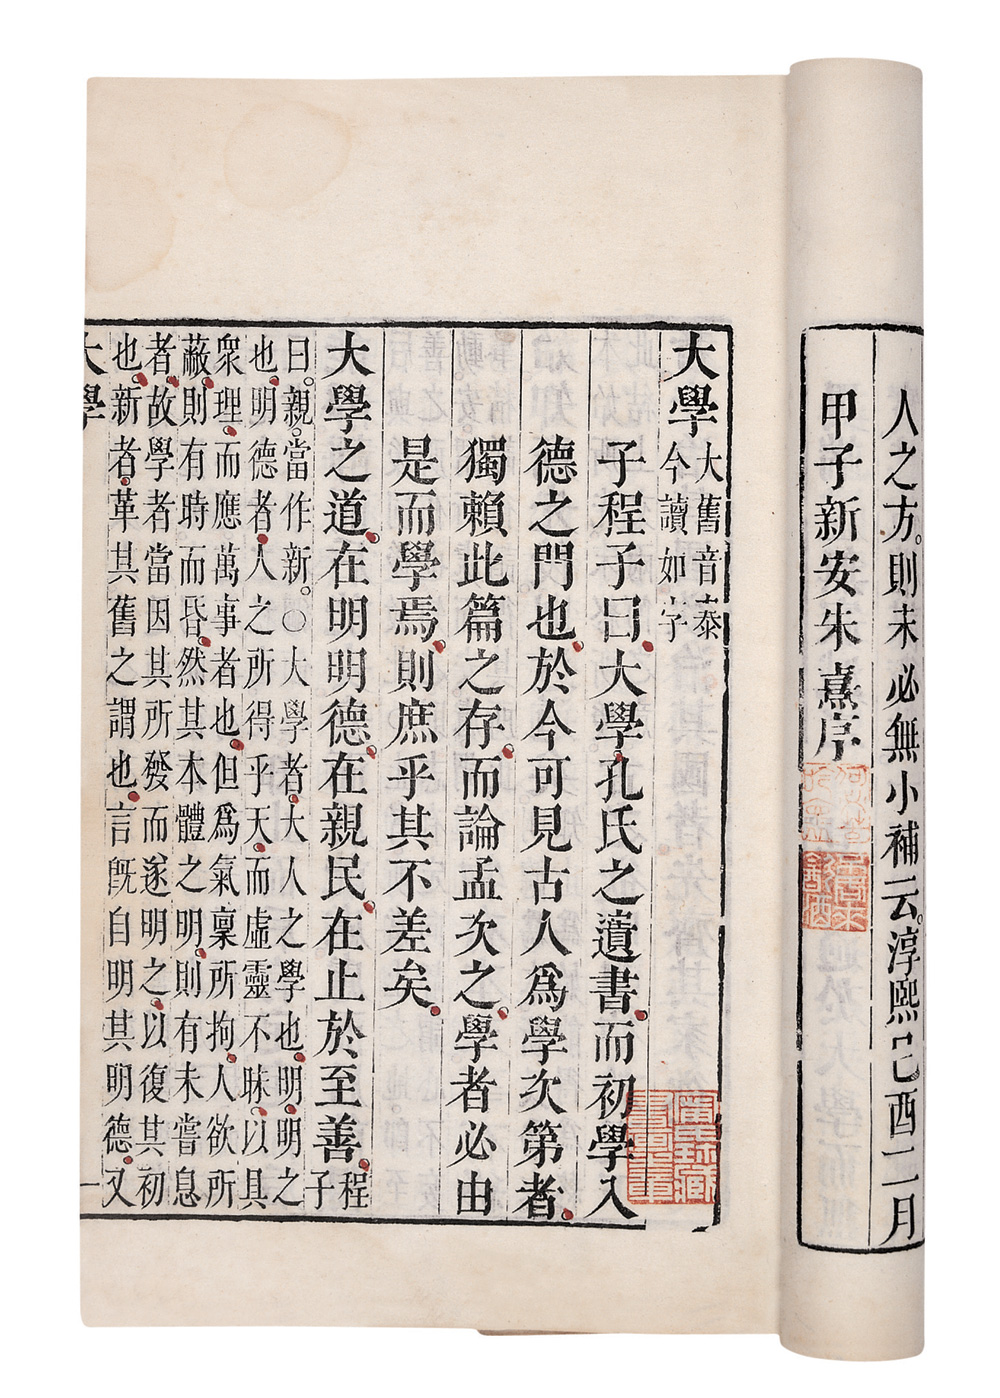 人之方。則未必無小補云。淳熙己酉二月
甲子新安朱熹序
大學
大舊音泰
今讀如字
子程子曰。大學。孔氏之遺書。而初學入
德之門也。於今可見古人爲學次第者。
獨賴此篇之存。而論孟次之。學者必由
是而學焉。則庶乎其不差矣。
大學之道。在明明德。在親民。在止於至善。程子
曰。親。當作新。○大學者。大人之學也。明。明之
也。明德者。人之所得乎天。而虛靈不昧。以具
衆理。而應萬事者也。但爲氣稟所拘。人欲所
蔽。則有時而昏。然其本體之明。則有未嘗息
者。故學者當因其所發而遂明之。以復其初
也。新者。革其舊之謂也。言旣自明其明德。又
大學 一